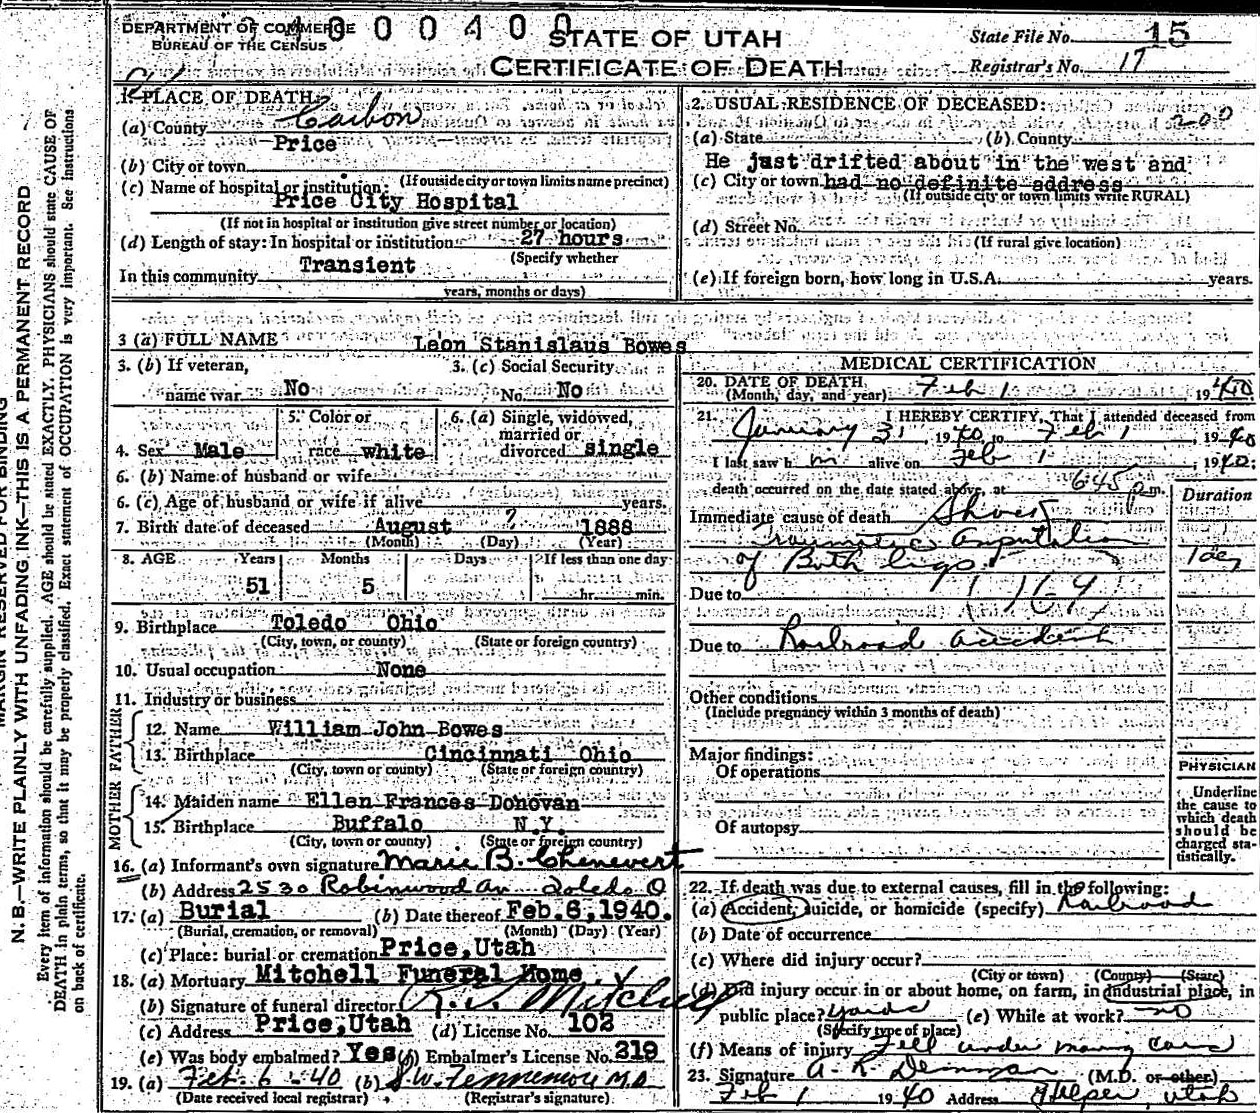 DEPARTMENT OF COMMERCE
BUREAU OF THE CENSUS
STATE OF UTAH
CERTIFICATE OF DEATH
State File No. 15
Registrar's No. 17
1. PLACE OF DEATH:
(a) County Carbon
Price
(b) City or town
(If outside city or town limits name precinct)
(c) Name of hospital or institution:
Price City Hospital
(If not in hospital or institution give street number or location)
(d) Length of stay: In hospital or institution 27 hours
(Specify whether
In this community Transient
years, months or days)
2. USUAL RESIDENCE OF DECEASED:
200
(a) State (b) County
He just drifted about in the west and
(c) City or town had no definite address
(If outside city or town limits write RURAL)
(d) Street No.
(If rural give location)
(e) If foreign born, how long in U.S.A. years.
3 (a) FULL NAME Leon Stanislaus Bowes
3. (b) If veteran, name war No
3. (c) Social Security No. No
4. Sex Male
5. Color or race white
6. (a) Single, widowed, married or divorced single
6. (b) Name of husband or wife
6. (c) Age of husband or wife if alive years.
7. Birth date of deceased August ? 1888
(Month) (Day) (Year)
8. AGE Years Months Days If less than one day
51 5 hr. min.
9. Birthplace Toledo Ohio
(City, town, or county) (State or foreign country)
10. Usual occupation None
11. Industry or business
FATHER
12. Name William John Bowes
13. Birthplace Cincinnati Ohio
(City, town or county) (State or foreign country)
MOTHER
14. Maiden name Ellen Frances Donovan
15. Birthplace Buffalo N.Y.
(City, town or county) (State or foreign country)
16. (a) Informant's own signature Marie B. Chenevert
(b) Address 2530 Robinwood Av Toledo O
17. (a) Burial (b) Date thereof Feb.6,1940.
(Burial, cremation, or removal) (Month) (Day) (Year)
(c) Place: burial or cremation Price,Utah
18. (a) Mortuary Mitchell Funeral Home
(b) Signature of funeral director Mitchell
(c) Address Price,Utah (d) License No. 102
(e) Was body embalmed? Yes (f) Embalmer's License No. 219
19. (a) Feb-6-40 (b) M.D.
(Date received local registrar) (Registrar's signature)
MEDICAL CERTIFICATION
20. DATE OF DEATH Feb 1 1940
(Month, day, and year)
21. I HEREBY CERTIFY, That I attended deceased from
January 31, 1940, to Feb 1, 1940
I last saw h im alive on Feb 1, 1940;
death occurred on the date stated above, at 6:45 p.m.
Duration
Immediate cause of death Shock
Traumatic amputation
of Both legs. 1 day
Due to (169)
Due to Railroad accident
Other conditions
(Include pregnancy within 3 months of death)
Major findings:
Of operations
Of autopsy
PHYSICIAN
Underline
the cause to
which death
should be
charged sta-
tistically.
22. If death was due to external causes, fill in the following:
(a) Accident, suicide, or homicide (specify) Railroad
(b) Date of occurrence
(c) Where did injury occur?
(City or town) (County) (State)
(d) Did injury occur in or about home, on farm, in industrial place, in
public place? yards (e) While at work? no
(Specify type of place)
(f) Means of injury Fell under moving cars
23. Signature (M.D. or other)
Feb 1 1940 Address Helper, Utah
MARGIN RESERVED FOR BINDING
N. B.—WRITE PLAINLY WITH UNFADING INK—THIS IS A PERMANENT RECORD
Every item of information should be carefully supplied. AGE should be stated EXACTLY. PHYSICIANS should state CAUSE OF
DEATH in plain terms, so that it may be properly classified. Exact statement of OCCUPATION is very important. See Instructions
on back of certificate.